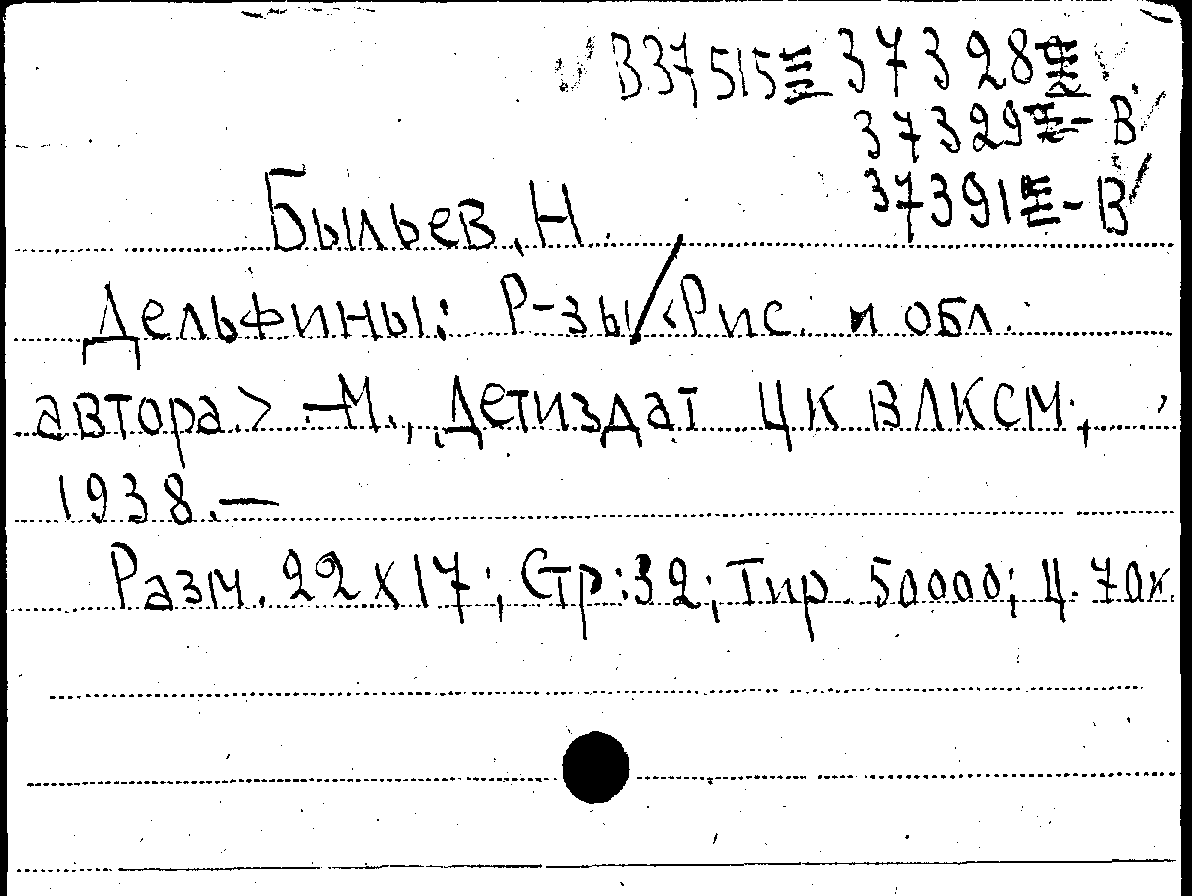 В37515 37328
37329 - В
37391 - В
Быльев, Н.
Дельфины: Р-зы/<Рис. и обл.
автора.> -М., Детиздат ЦК ВЛКСМ,
1938.—
Разм. 22х17; Стр:32; Тир. 50000; Ц. 70к.